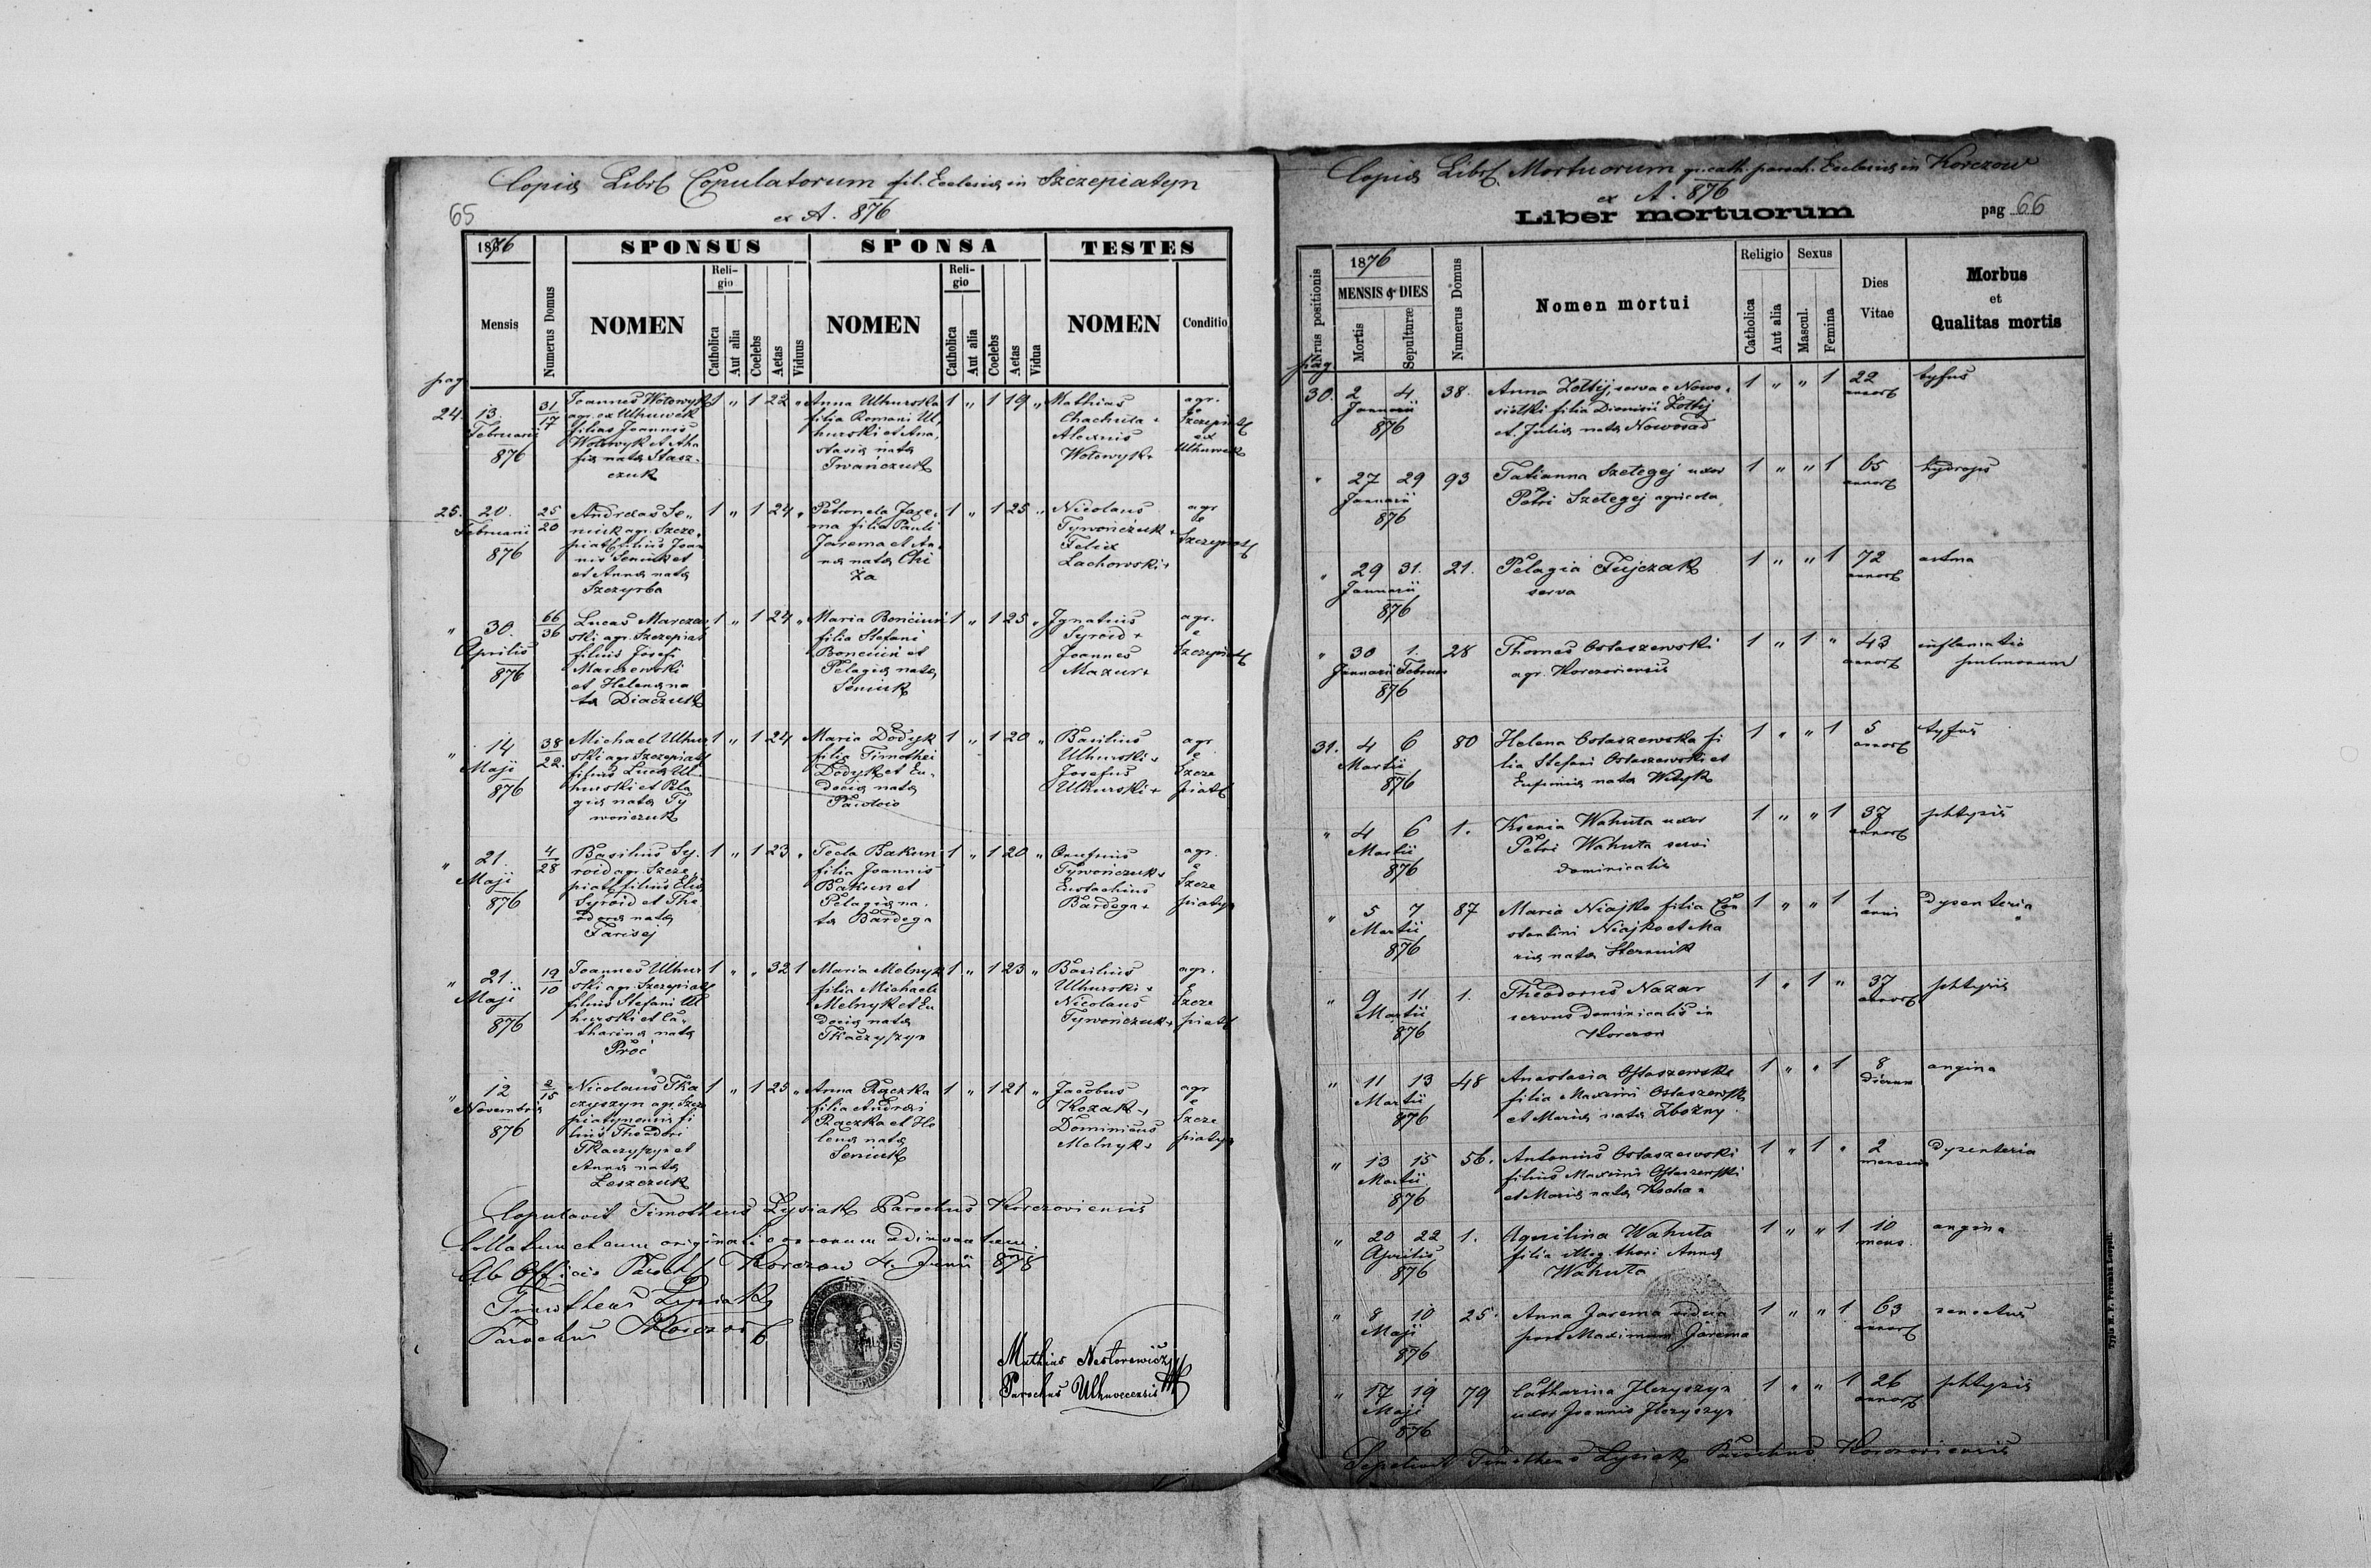 Copia Libri Copulatorum fil. Ecclesiæ in Szczepiatyn
65
ex A. 876
1876
SPONSUS
SPONSA
TESTES
Mensis
Numerus Domus
NOMEN
Religio
Catholica
Aut alia
Coelebs
Aetas
Viduus
NOMEN
Religio
Catholica
Aut alia
Coelebs
Aetas
Vidua
NOMEN
Conditio
pag
24. 13. Februarii 876
31/17
Joannes Wotowyk
agr. ex Uhnuwek
filius Joannis
Wotowyk et
nata Stasz-
czuk
1 " 1 22 "
Anna Uhnurska
filia Romani Ul-
hurski et Ana-
stasiæ nata
Iwańczuk
1 " 1 19 "
Mathias
Chachuta +
Alexius
Wotowyk +
agr.
25. 20. Februarii 876
25/20
Andreas Se-
niuk agr. Szcze-
piat filius Joan
nis Seniuk et
et Annæ nata
Szczyrba
1 " 1 24 "
Petronela Jare-
ma filia Pauli
Jarema et An-
næ nata Chi
ża
1 " 1 25 "
Nicolaus
Tywończuk +
Felix
Lachowski +
agr
e
" 30. Aprilis 876
66/36
Lucas Marczew
ski agr. Szczepiat
filius Josefi
Marczewski
et Helenæ na
ta Diaczuk
1 " 1 24 "
Maria Bonciuń
filia Stefani
Bonciuń et
Pelagiæ nata
Seniuk
1 " 1 25 "
Ignatius
Syroid +
Joannes
Mazur +
agr.
e
" 14 Maji 876
38/22.
Michael Ulhur
ski agr Szczepiat
filius Lucæ Ul-
hurski et Pela
giæ nata Ty
wończuk
1 " 1 24
Maria Dodyk
filia Timothei
Dodyk et Eu-
dociæ nata
1 " 1 20 "
Basilius
Ulhurski +
Josefus
Ulhurski +
agr
e
Szcze
piat
" 21. Maji 876
4/28
Basilius Sy-
roid agr. Szcze
piat filius Eliæ
Syroid et The
odoræ nata
Farisej
1 " 1 23 "
Tecla Bakun
filia Joannis
Bakun et
Pelagiæ na-
ta Bardega
1 " 1 20 "
Onufrius
Tywończuk +
Eustachius
Bardega +
agr.
e
Szcze
piatyn
" 21. Maji 876
19/10
Joannes Ulhur
ski agr. Szczepiat
filius Stefani Ul
hurski et Ca-
tharinæ nata
Proć
1 " " 32 1
Maria Melnyk
filia Michaeli
Melnyk et Eu
dociæ nata
Tkaczyszyn
1 " 1 23 "
Basilius
Ulhurski +
Nicolaus
Tywończuk +
agr.
e
Szcze
piat
" 12 Novembris 876
2/15
Nicolaus Tka
czyszyn agr. Szcze
piatynensis fi
lius Theodori
Tkaczyszyn et
Annæ nata
Leszczuk
1 " 1 25 "
Anna Raczka
filia Andreæ
Raczka et He
lenæ nata
Seniuk
1 " 1 21 "
Jacobus
Kozak +
Dominicus
Melnyk +
agr
e
Szcze
piatyn
Copulavit Timotheus Łysiak Parochus Korczoviensis
Collatum et cum originali
Ab Officio Paroch Korczow 4. Junii 878
Timotheus Łysiak
Parochus Korczow
Mathias Nestorowicz
Parochus Ulhuvecensis
Copia Libri Mortuorum gr. cath. paroch. Ecclesiæ in Korczow
ex A. 876
Liber mortuorum
pag 66
Nrus positionis
1876
MENSIS & DIES
Mortis
Sepulturæ
Numerus Domus
Nomen mortui
Religio
Catholica
Aut alia
Sexus
Mascul.
Femina
Dies Vitae
Morbus
et
Qualitas mortis
pag
30. 2 4 Januarii 876 38.
Anna Zołtij, serva e Nowo-
siółki filia Dionisii Zołtij
et Juliæ nata Nowosad
1 " " 1 22 annor typus
" 27 29 Januarii 876 93
Tatianna Szelegej uxor
Petri Szelegej agricola
1 " " 1 65 annor hydrops
" 29 31. Januarii 876 21.
Pelagia Fujczak
serva
1 " " 1 72 annor astma
" 30 1. Januarii Februar 876 28
Thomas Ostaszewski
agr. Korczoviensis
1 " 1 " 43 annor inflamatio
pulmonum
31. 4 6 Martii 876 80
Helena Ostaszewska fi
lia Stefani Ostaszewski et
Eufimiæ nata Witzyk
1 " " 1 5 annor tyfus
" 4 6 Martii 876 1.
Ksenia Wahuta uxor
Petri Wahuta servi
dominicalis
1 " " 1 37 annor phtysis
" 5 7 Martii 876 87
Maria Niajko filia Con
stantini Niajko et Ma
riæ nata
1 " " 1 1 anni dysenteria
" 9 11 Martii 876 1.
Theodorus Nazar
servus dominicalis in
Korczow
1 " 1 " 37 annor phtysis
" 11 13 Martii 876 48
Anastasia Ostaszewska
filia Maximi Ostaszewski
et Mariæ nata Zbożny
1 " " 1 8 dierum angina
" 13 15 Martii 876 56.
Antonius Ostaszewski
filius Maximi Ostaszewski
et Mariæ nata Kocha
1 " 1 " 2 mensium dysenteria
" 20 22 Aprilis 876 1.
Aquilina Wahuta
filia illeg. thori Annæ
Wahuta
1 " " 1 10 mens. angina
" 8 10 Maji 876 25.
Anna Jarema vidua
post Maximum Jarema
1 " " 1 63 annor senectus
" 17 19 Maji 876 79
Catharina Ilczyszyn
uxor Joannis Ilczyszyn
1 " " 1 26 annor phtysis
Sepelivit Timotheus Łysiak Parochus Korczoviensis